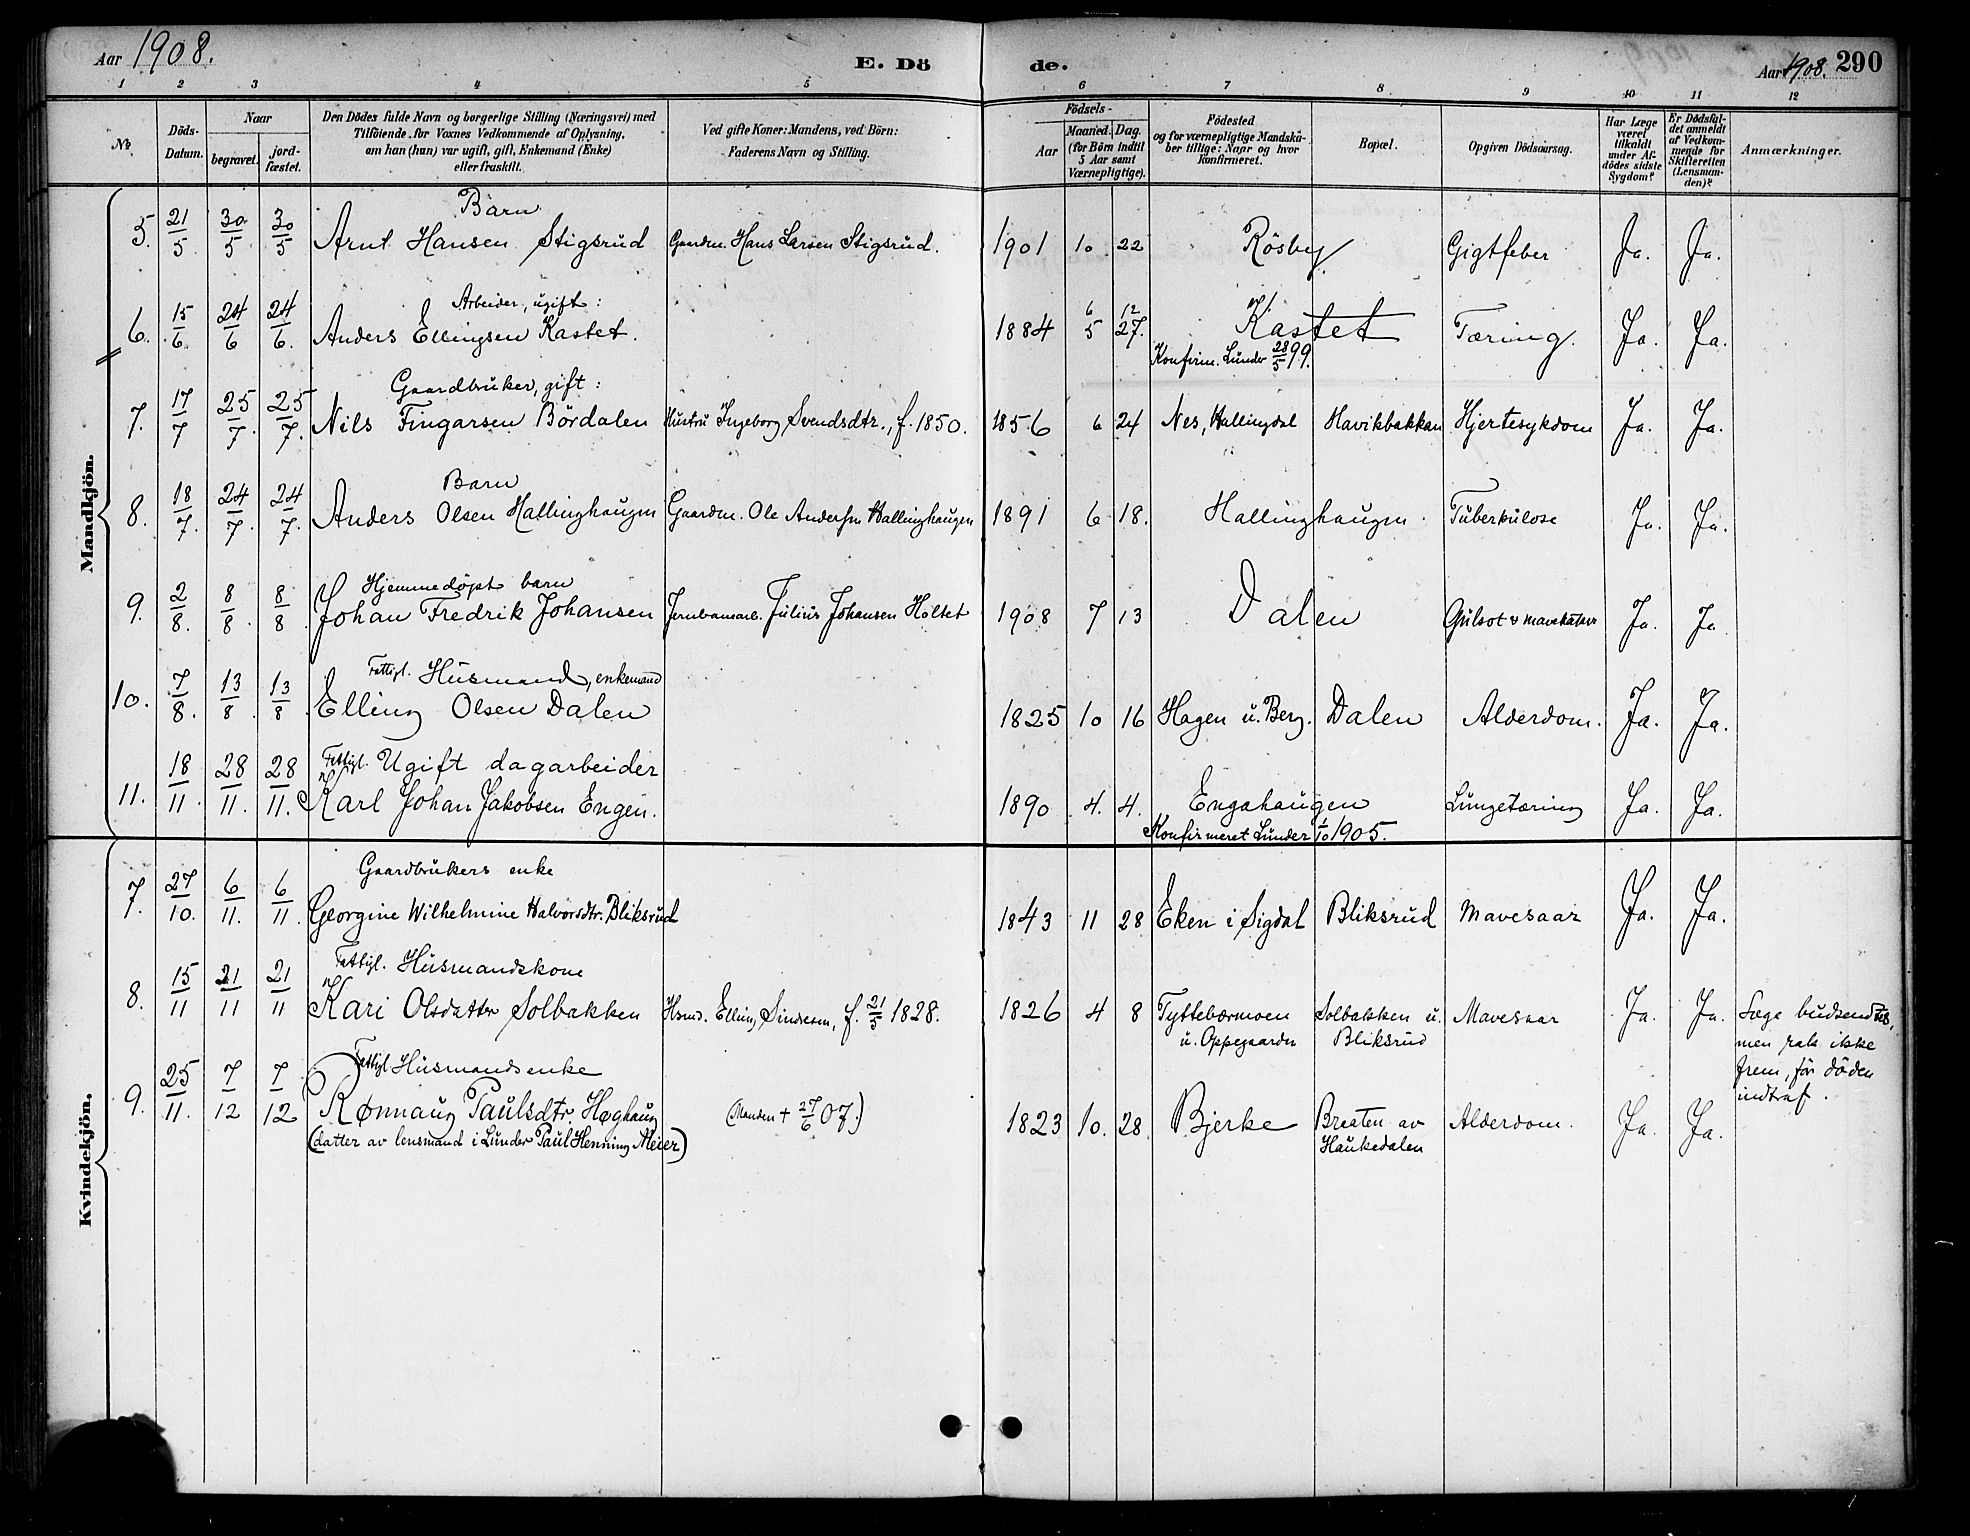 Aar 1908.
E. Dö de.
Aar 1908. 290
1 2 3 4 5 6 7 8 9 10 11 12
No
Döds-Datum.
Naar
begravet.
jord-fæstet.
Den Dödes fulde Navn og borgerlige Stilling (Næringsvei) med
Tilföiende for Voxnes Vedkommende af Oplysning,
om han (hun) var ugift, gift, Enkemand (Enke)
eller fraskilt.
Ved gifte Koner: Mandens, ved Börn:
Faderens Navn og Stilling.
Födsels-
Aar
Maaned. Dag.
(for Börn indtil
5 Aar samt
Værnepligtige).
Födested
og for værnepligtige Mandska-
ber tillige: Naar og hvor
konfirmeret.
Bopæl.
Opgiven Dödsaarsag.
Har Læge
været
tilkaldt
under Af-
dödes sidste
Sygdom?
Er Dödsfal-
det anmeldt
af Vedkom-
mende for
Skifteretten
(Lensman-
den)?
Anmærkninger.
Mandkjön.
Barn
5. 21/5 30/5 30/5 Arnt Hansen Stigsrud Gaardm. Hans Larsen Stigsrud. 1901 10 22 Rösby Gigtfeber Ja. Ja.
Arbeider, ugift:
6. 15/6 24/6 24/6. Anders Ellingsen Kastet. 1884 6 5 12 27. Kastet Tæring. Ja. Ja.
Konfirm. Lunder 28/5 99.
Gaardbruker, gift:
7. 17/7 25/7. 25/7. Nils Fingarsen Bördalen Hustru Ingeborg Svendsdtr., f. 1850. 1856 6 24 Nes, Hallingdal Havikbakkan Hjertesykdom Ja. Ja.
Barn
8. 18/7. 24/7. 24/7. Anders Olsen Hallinghaugen Gaardm. Ole Andersen Hallinghaugen 1891 6 18. Hallinghaugen. Tuberkulose Ja. Ja.
Hjemmedøpt barn
9. 2/8. 8/8 8/8 Johan Fredrik Johansen Jernbanearb. Julius Johansen Holtet 1908 7 13 Dalen Gulsot & mavekatarr Ja. Ja
Fattigl. Husmand, enkemand
10. 7/8. 13/8. 13/8 Elling Olsen Dalen 1825 10 16 Hagen u. Berg. Dalen Alderdom. Ja. Ja.
Fattigl. Ugift dagarbeider
11. 18/11. 28/11. 28/11. Karl Johan Jakobsen Engen. 1890 4. 4. Engahaugen Lungetæring Ja. Ja.
Konfirmeret Lunder 1/10 1905.
Kvindekjön.
Gaardbrukers enke
7. 27/10. 6/11. 6/11. Georgine Wilhelmine Halvorsdtr. Bliksrud 1843 11 28 Eken i Sigdal Bliksrud Mavesaar Ja. Ja.
Fattigl. Husmandskone
8. 15/11 21/11 21/11 Kari Olsdatter Solbakken Hsmd. Elling Sindresen, f. 21/5 1828. 1826 4 8 Tyttebærmoen Solbakken u. Mavesaar Ja. Ja. Læge budsendtes,
u. Oppegaarden Bliksrud men rak ikke
frem, før döden
indtraf.
Fattigl Husmandsenke
9. 25/11. 7/12 7/12 Rønnaug Paulsdtr. Høghaug (Manden + 27/6 07.) 1823 10. 28 Bjerke Braaten av Alderdom. Ja. Ja.
(datter av lensmand i Lunder Paul Henning Meier) Haukedalen